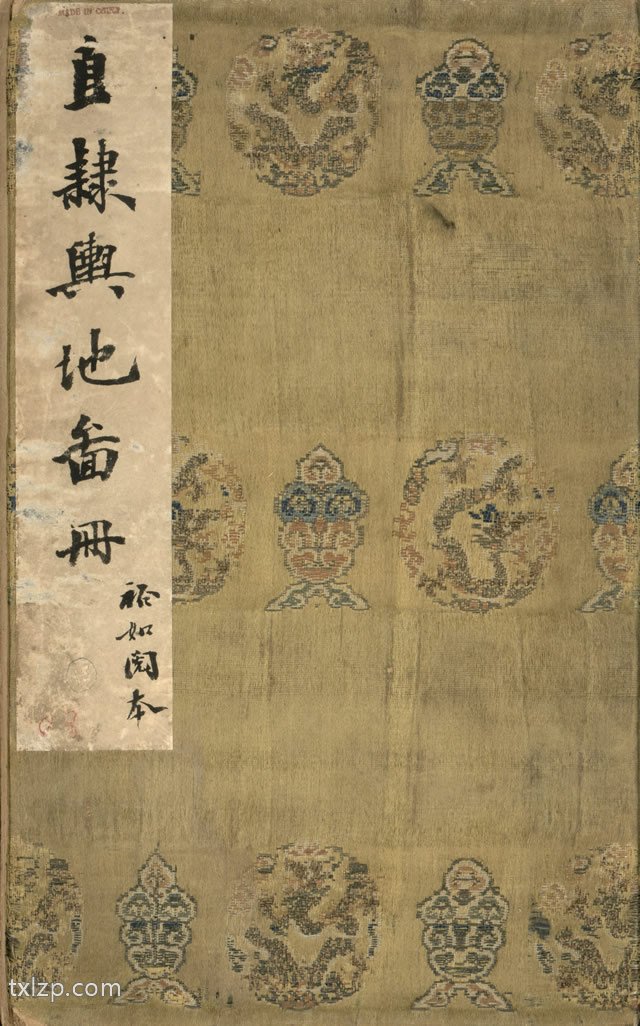 MADE IN CHINA.
直隸輿地啚冊
裕如閱本
txlzp.com